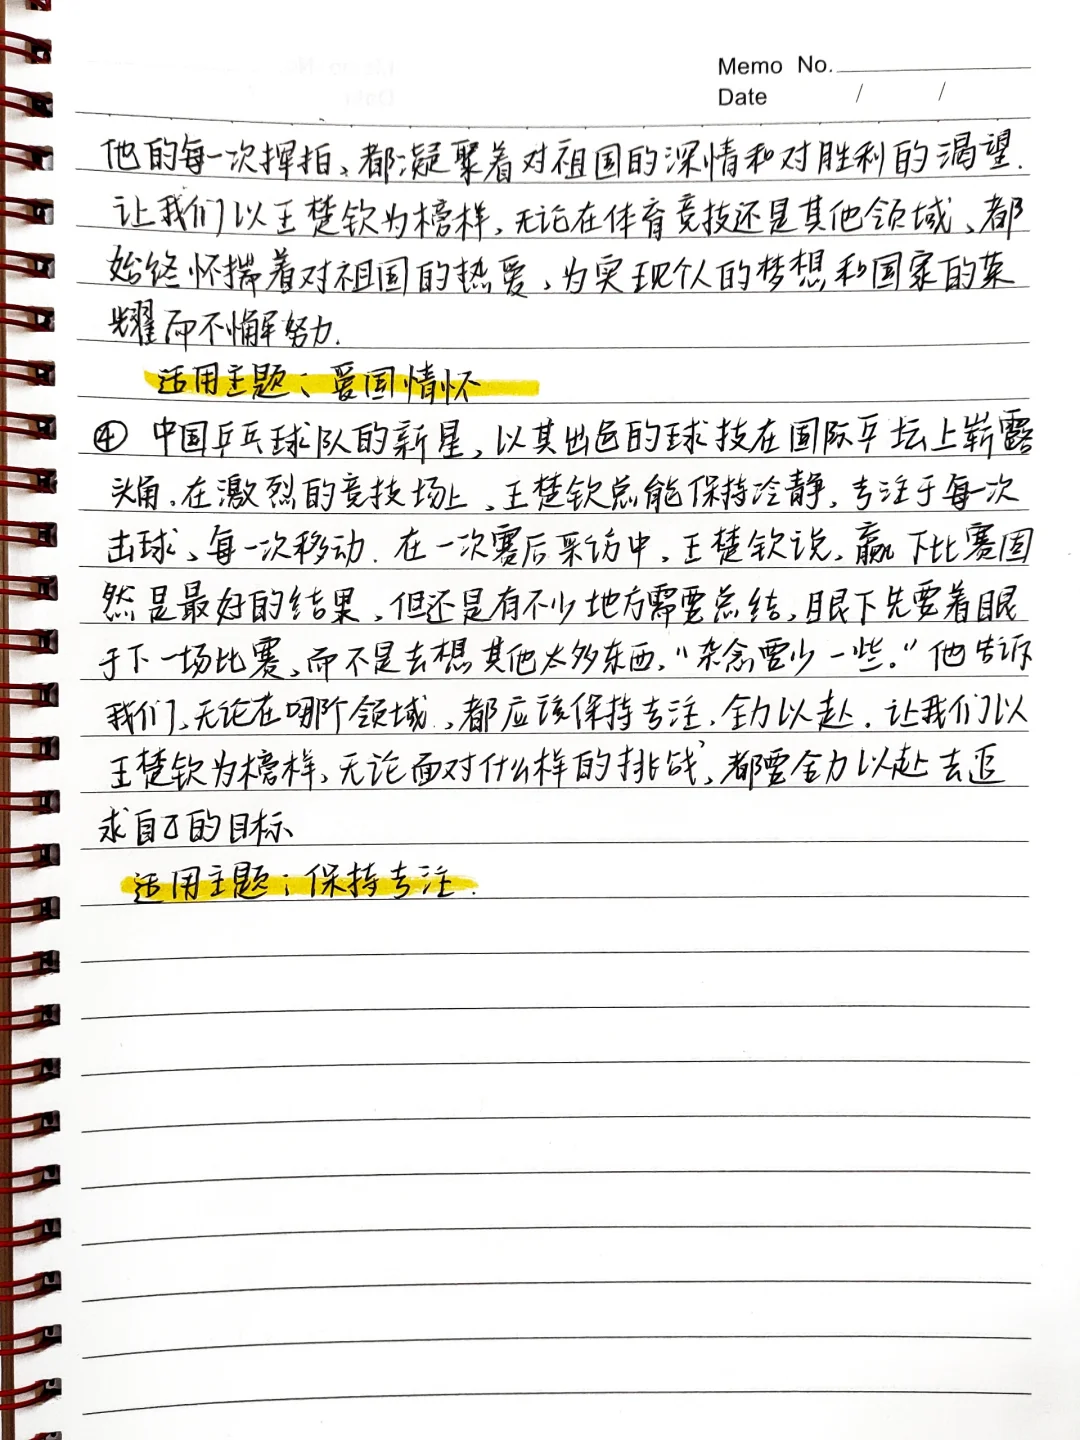 Memo No.
Date / /
他的每一次挥拍、都凝聚着对祖国的深情和对胜利的渴望.
让我们以王楚钦为榜样,无论在体育竞技还是其他领域、都
始终怀揣着对祖国的热爱、为实现个人的梦想和国家的荣
耀而不懈努力.
适用主题:爱国情怀
④ 中国乒乓球队的新星,以其出色的球技在国际乒坛上崭露
头角.在激烈的竞技场上、王楚钦总能保持冷静,专注于每一次
击球、每一次移动.在一次赛后采访中,王楚钦说、赢下比赛固
然是最好的结果,但还是有不少地方需要总结,眼下先要着眼
于下一场比赛、而不是去想其他太多东西,“杂念要少一些.”他告诉
我们、无论在哪个领域、都应该保持专注.全力以赴.让我们以
王楚钦为榜样、无论面对什么样的挑战、都要全力以赴去追
求自己的目标、
适用主题:保持专注.